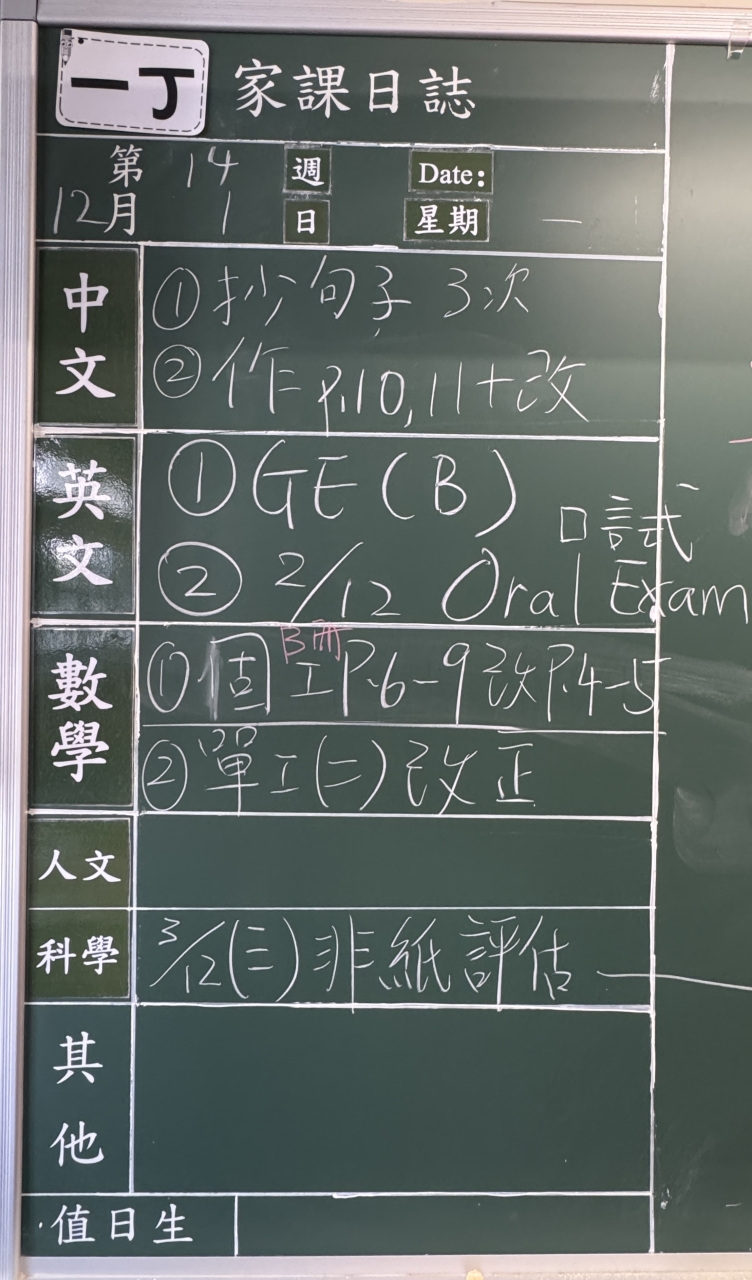 一丁 家課日誌
第 14 週 Date:
12月 1 日 星期 一
中文
①抄句子 3次
②作 p.10,11+改
英文
①GE(B)
口試
② 2/12 Oral Exam
數學
B冊
①個工P.6-9改P.4-5
②單工(二)改正
人文
科學
3/12(三)非紙評估
其他
值日生